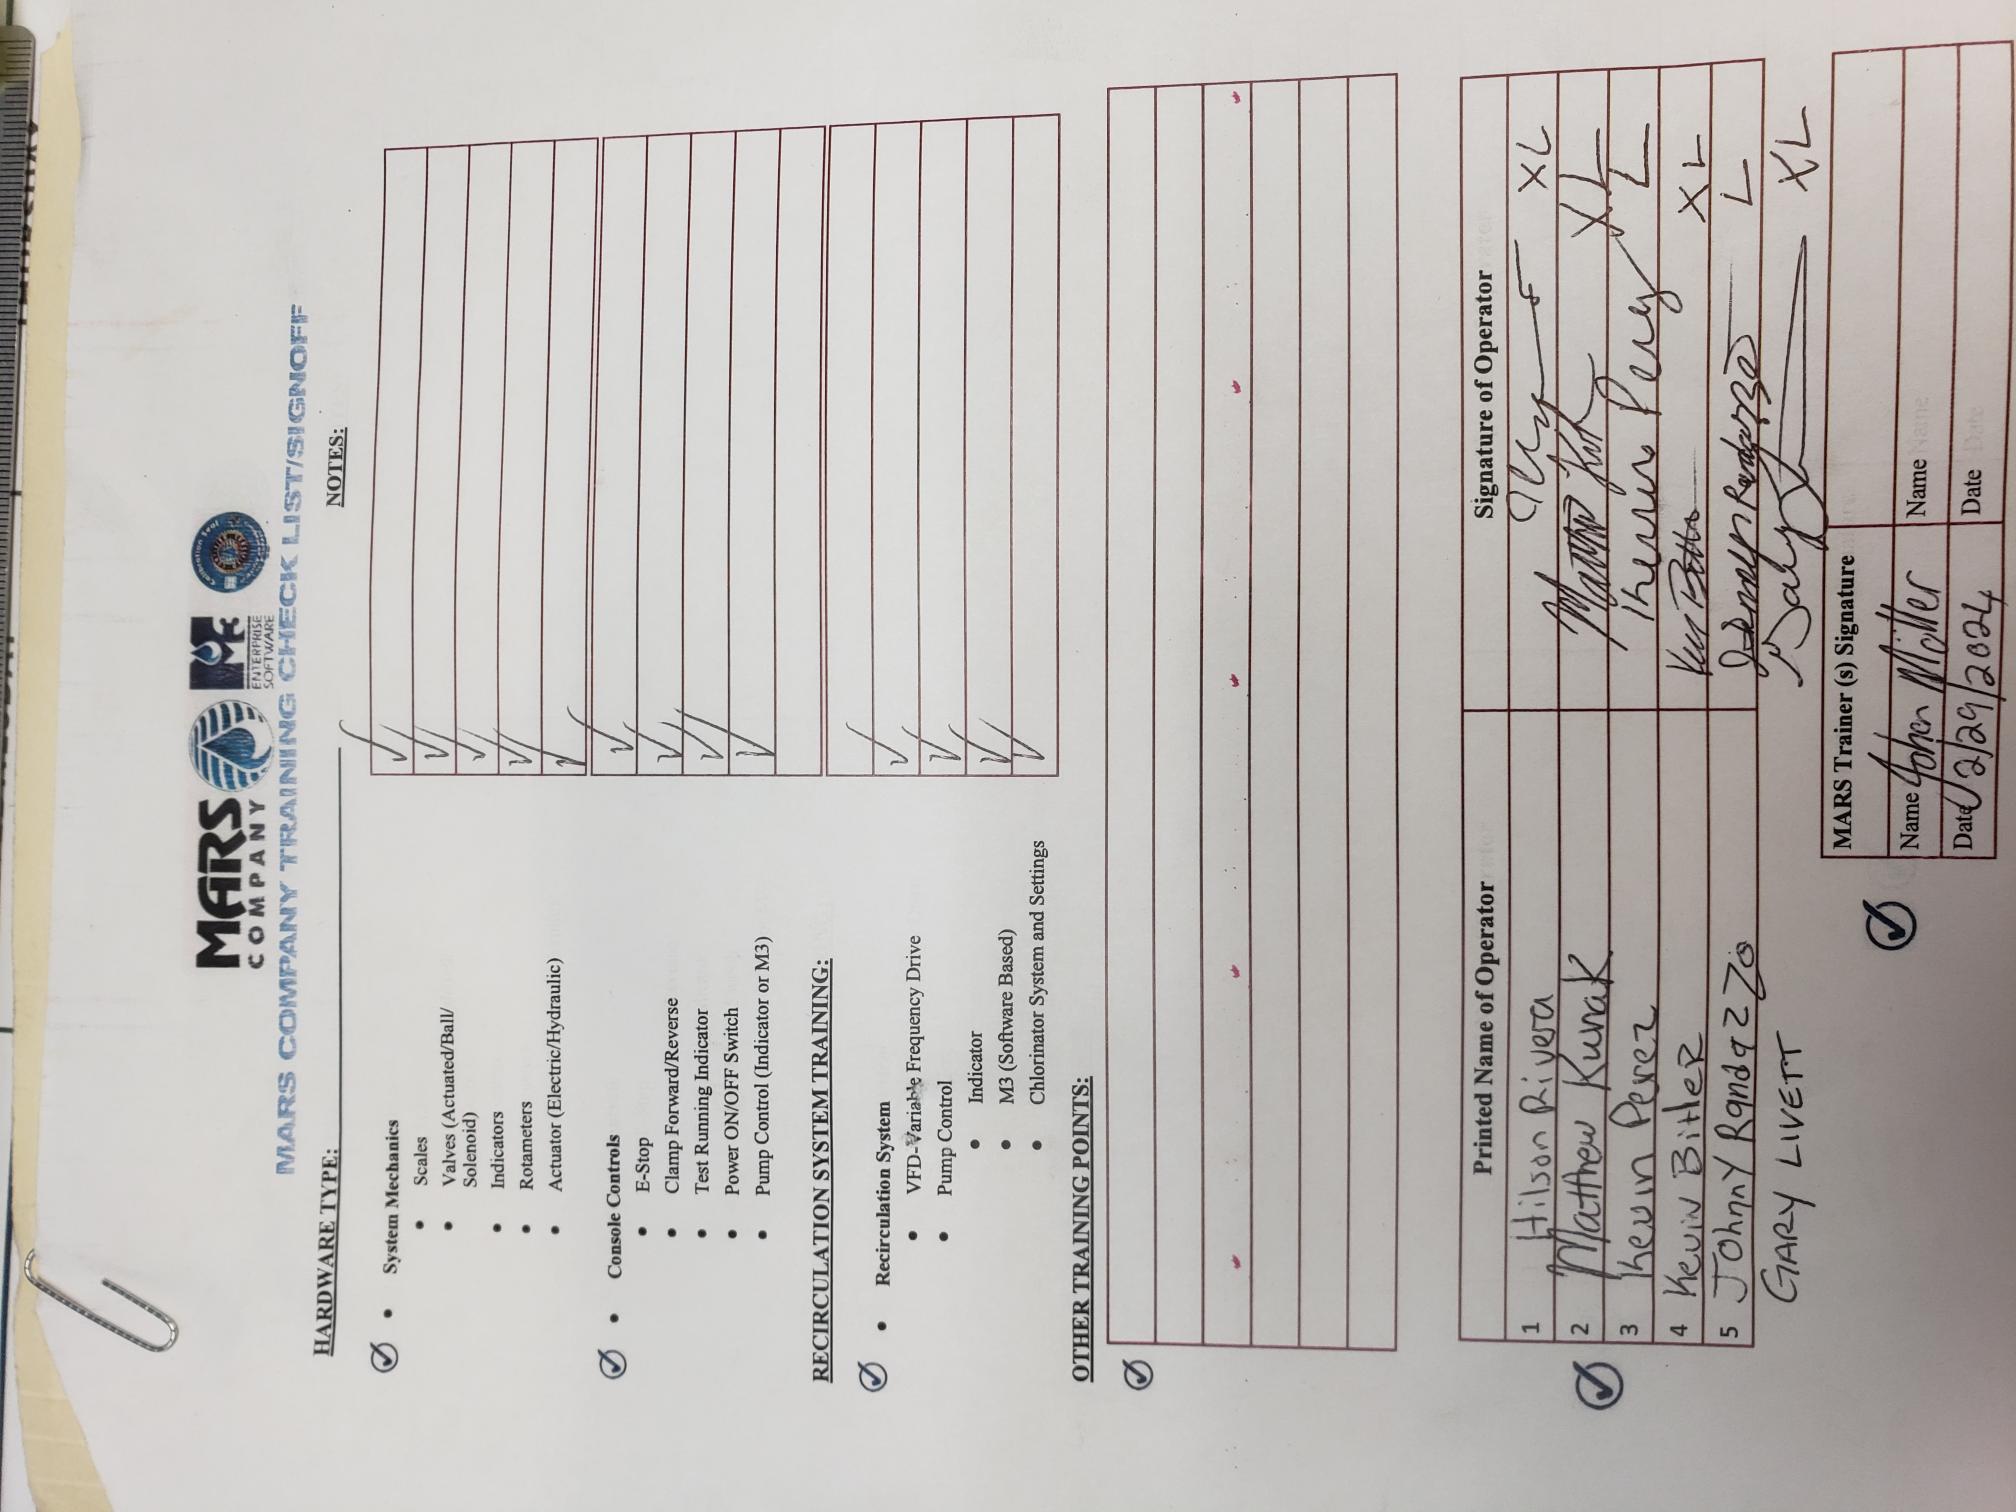 MARS
COMPANY
ENTERPRISE
SOFTWARE
Calibration Seal
MARS COMPANY TRAINING CHECK LIST/SIGNOFF
HARDWARE TYPE:
NOTES:
System Mechanics
Scales
Valves (Actuated/Ball/
Solenoid)
Indicators
Rotameters
Actuator (Electric/Hydraulic)
Console Controls
E-Stop
Clamp Forward/Reverse
Test Running Indicator
Power ON/OFF Switch
Pump Control (Indicator or M3)
RECIRCULATION SYSTEM TRAINING:
Recirculation System
VFD-Variable Frequency Drive
Pump Control
Indicator
M3 (Software Based)
Chlorinator System and Settings
OTHER TRAINING POINTS:
Printed Name of Operator Signature of Operator
1 Hilson Rivera XL
2 Matthew Kunak Matthew XL
3 Kevin Perez Kevin Perez L
4 Kevin Bitler XL
5 Johnny Randazzo Johnny Randazzo L
GARY LIVETT Gary XL
MARS Trainer (s) Signature
Name Johan Möller Name
Date 2/29/2024 Date